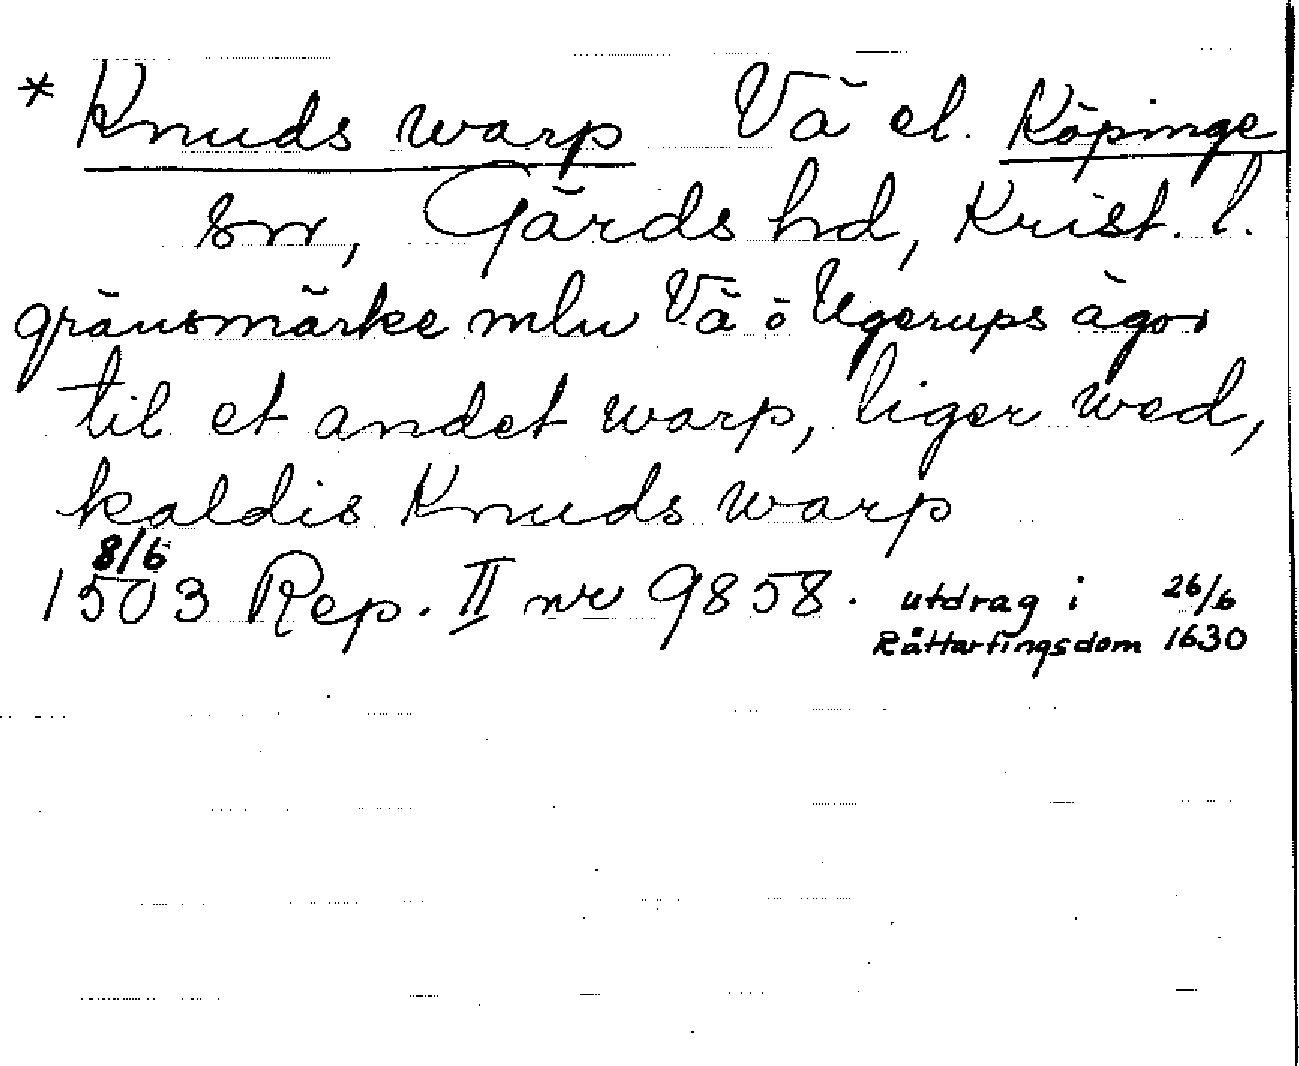 * Knuds warp Vä el. Köpinge
snr, Gärds hd, Krist. l.
gränsmärke mln Vä o Ugerups ägor
til et andet warp, liger wed,
kaldis Knuds warp
8/6
1503 Rep. II nr 9858. utdrag i 26/6
Råttartingsdom 1630